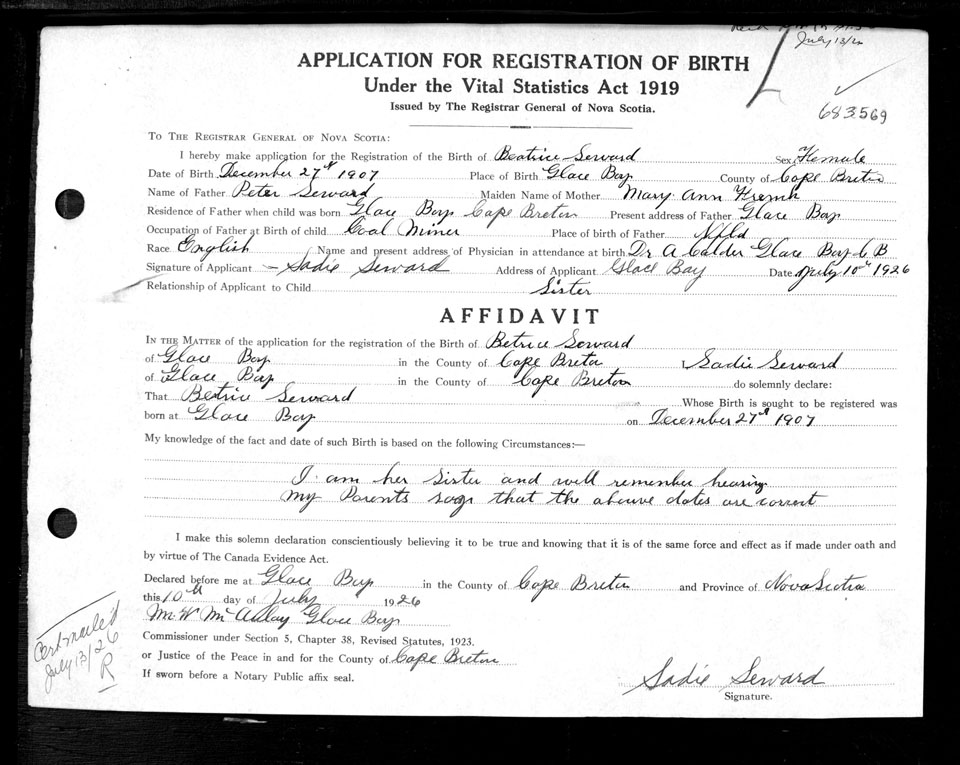 July 13/26
APPLICATION FOR REGISTRATION OF BIRTH
Under the Vital Statistics Act 1919
Issued by The Registrar General of Nova Scotia.
683569
TO THE REGISTRAR GENERAL OF NOVA SCOTIA:
I hereby make application for the Registration of the Birth of Beatrice Seward Sex Female
Date of Birth December 27th 1907 Place of Birth Glace Bay County of Cape Breton
Name of Father Peter Seward Maiden Name of Mother Mary Ann French
Residence of Father when child was born Glace Bay Cape Breton Present address of Father Glace Bay
Occupation of Father at Birth of child Coal Miner Place of birth of Father Nfld
Race English Name and present address of Physician in attendance at birth Dr A Calder Glace Bay C B
Signature of Applicant – Sadie Seward Address of Applicant Glace Bay Date July 10th 1926
Relationship of Applicant to Child Sister
AFFIDAVIT
IN THE MATTER of the application for the registration of the Birth of Betrice Seward
of Glace Bay in the County of Cape Breton I Sadie Seward
of Glace Bay in the County of Cape Breton do solemnly declare:
That Beatrice Seward Whose Birth is sought to be registered was
born at Glace Bay on December 27th 1907
My knowledge of the fact and date of such Birth is based on the following Circumstances:—
I am her Sister and well remember hearing
my Parents say that the above dates are correct
I make this solemn declaration conscientiously believing it to be true and knowing that it is of the same force and effect as if made under oath and
by virtue of The Canada Evidence Act.
Declared before me at Glace Bay in the County of Cape Breton and Province of Nova Scotia
this 10th day of July 1926
M. W McAulay Glace Bay
Commissioner under Section 5, Chapter 38, Revised Statutes, 1923.
or Justice of the Peace in and for the County of Cape Breton
If sworn before a Notary Public affix seal.
Cert mailed
July 13/26
R
Sadie Seward
Signature.